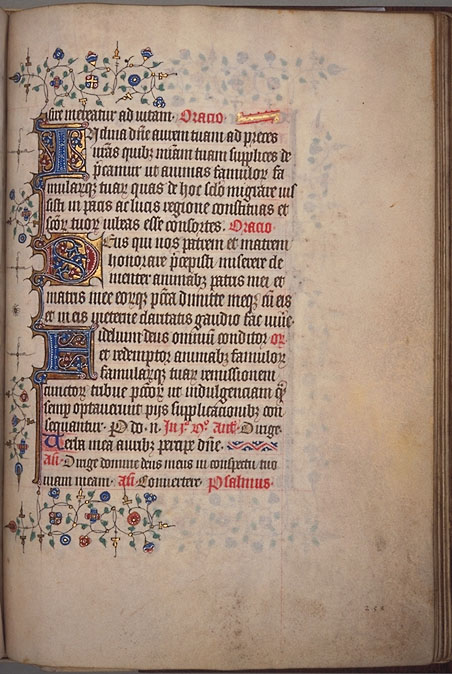 mereatur ad uitam. Oracio
Inclina dñe aurem tuam ad preces
nr̃as quibꝫ miam̃ tuam supplices de
p̃camur ut animas famuloꝝ fa
mularꝫ tuaꝝ quas de hoc sclo migrare ius
sisti in pacis ac lucis regione constituas et
scõꝝ tuoꝝ iubeas esse consortes. Oracio
Deus qui nos patrem et matrem
honorare p̃cepisti miserere cle
menter animabꝫ patris mei et
matris mee eoꝝqꝫ pctã dimitte meqꝫ cũ eis
et in eterne claritatis gaudio fac uiũe.
Fidelium deus omniũ conditor or̃
et redemptor animabꝫ famuloꝝ
famularꝫ tuaꝝ remissionem
cunctoꝝ tribue pctõꝝ ut indulgenciam q̃
semp optauerunt pijs supplicationibꝫ con
sequantur. P do. n. Añ Dirige
Uerba mea auribꝫ percipe dñe.
Añ. Dirige domine deus meus in conspectu tuo
uiam meam. Añ. Conuertere. Psalmus.
258